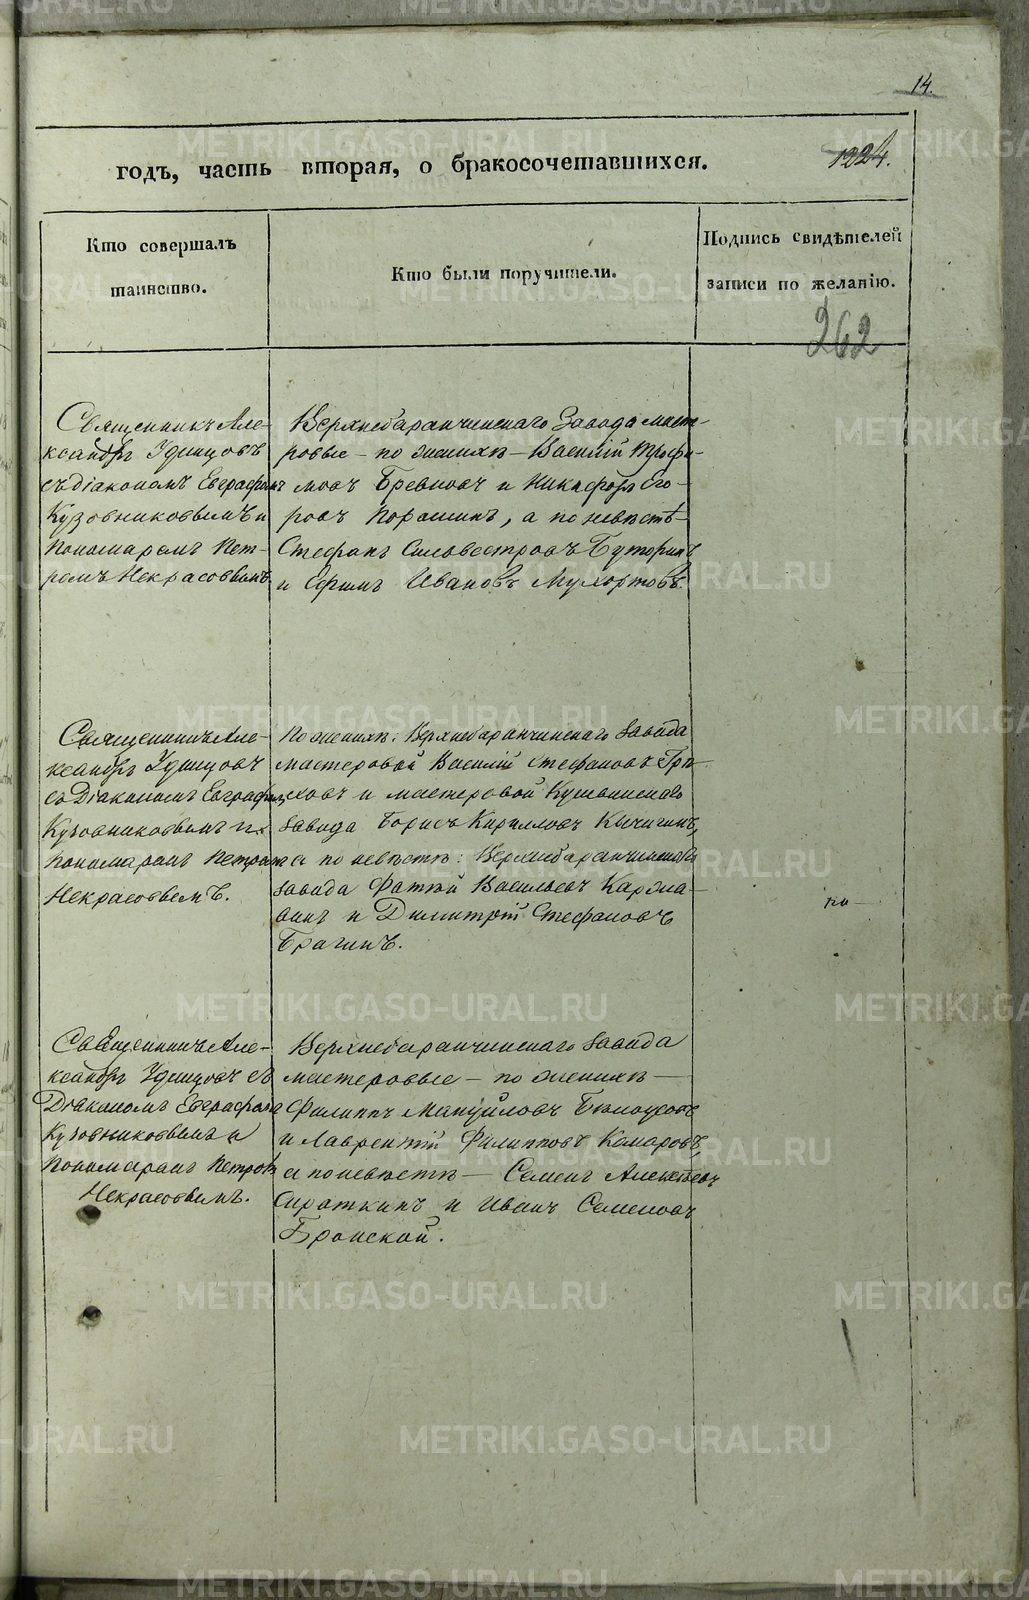 14.
годъ, часть вторая, о бракосочетавшихся.
1224.
Кто совершалъ
таинство.
Кто были поручители.
Подпись свидѣтелей
записи по желанію.
262
Священникъ Але-
ксандръ Удинцовъ
съ діакономъ Евграфомъ
Кузовниковымъ и
Пономаремъ Пет-
ромъ Некрасовымъ
Верхнебаранчинскаго Завода масте-
ровые – по женихѣ – Василій Трофи-
мовъ Бревновъ и Никифоръ Его-
ровъ Порошинъ, а по невѣстѣ –
Стефанъ Силовестровъ Буторинъ
и Ефимъ Ивановъ Мухортовъ.
Священникъ Але-
ксандръ Удинцовъ
съ Діакономъ Евграфомъ
Кузовниковымъ и
Пономаремъ Петромъ
Некрасовымъ.
По женихѣ: Верхнебаранчинскаго Завода
мастеровой Василій Стефановъ
и мастеровой Кушвинскаго
Завода Борисъ Кирилловъ Кычигинъ,
а по невѣстѣ: Верхнебаранчинскаго
Завода Фотій Васильевъ Каржа-
винъ и Димитрій Стефановъ
Брагинъ.
Священникъ Але-
ксандръ Удинцовъ съ
Діакономъ Евграфомъ
Кузовниковымъ и
Пономаремъ Петромъ
Некрасовымъ.
Верхнебаранчинскаго Завода
мастеровые – по женихѣ –
Филиппъ Мануйловъ Бѣлоусовъ
и Лаврентій Филипповъ Комаровъ,
а по невѣстѣ – Семенъ Алексѣевъ
Сироткинъ и Иванъ Семеновъ
Бронской.
METRIKI.GASO-URAL.RU